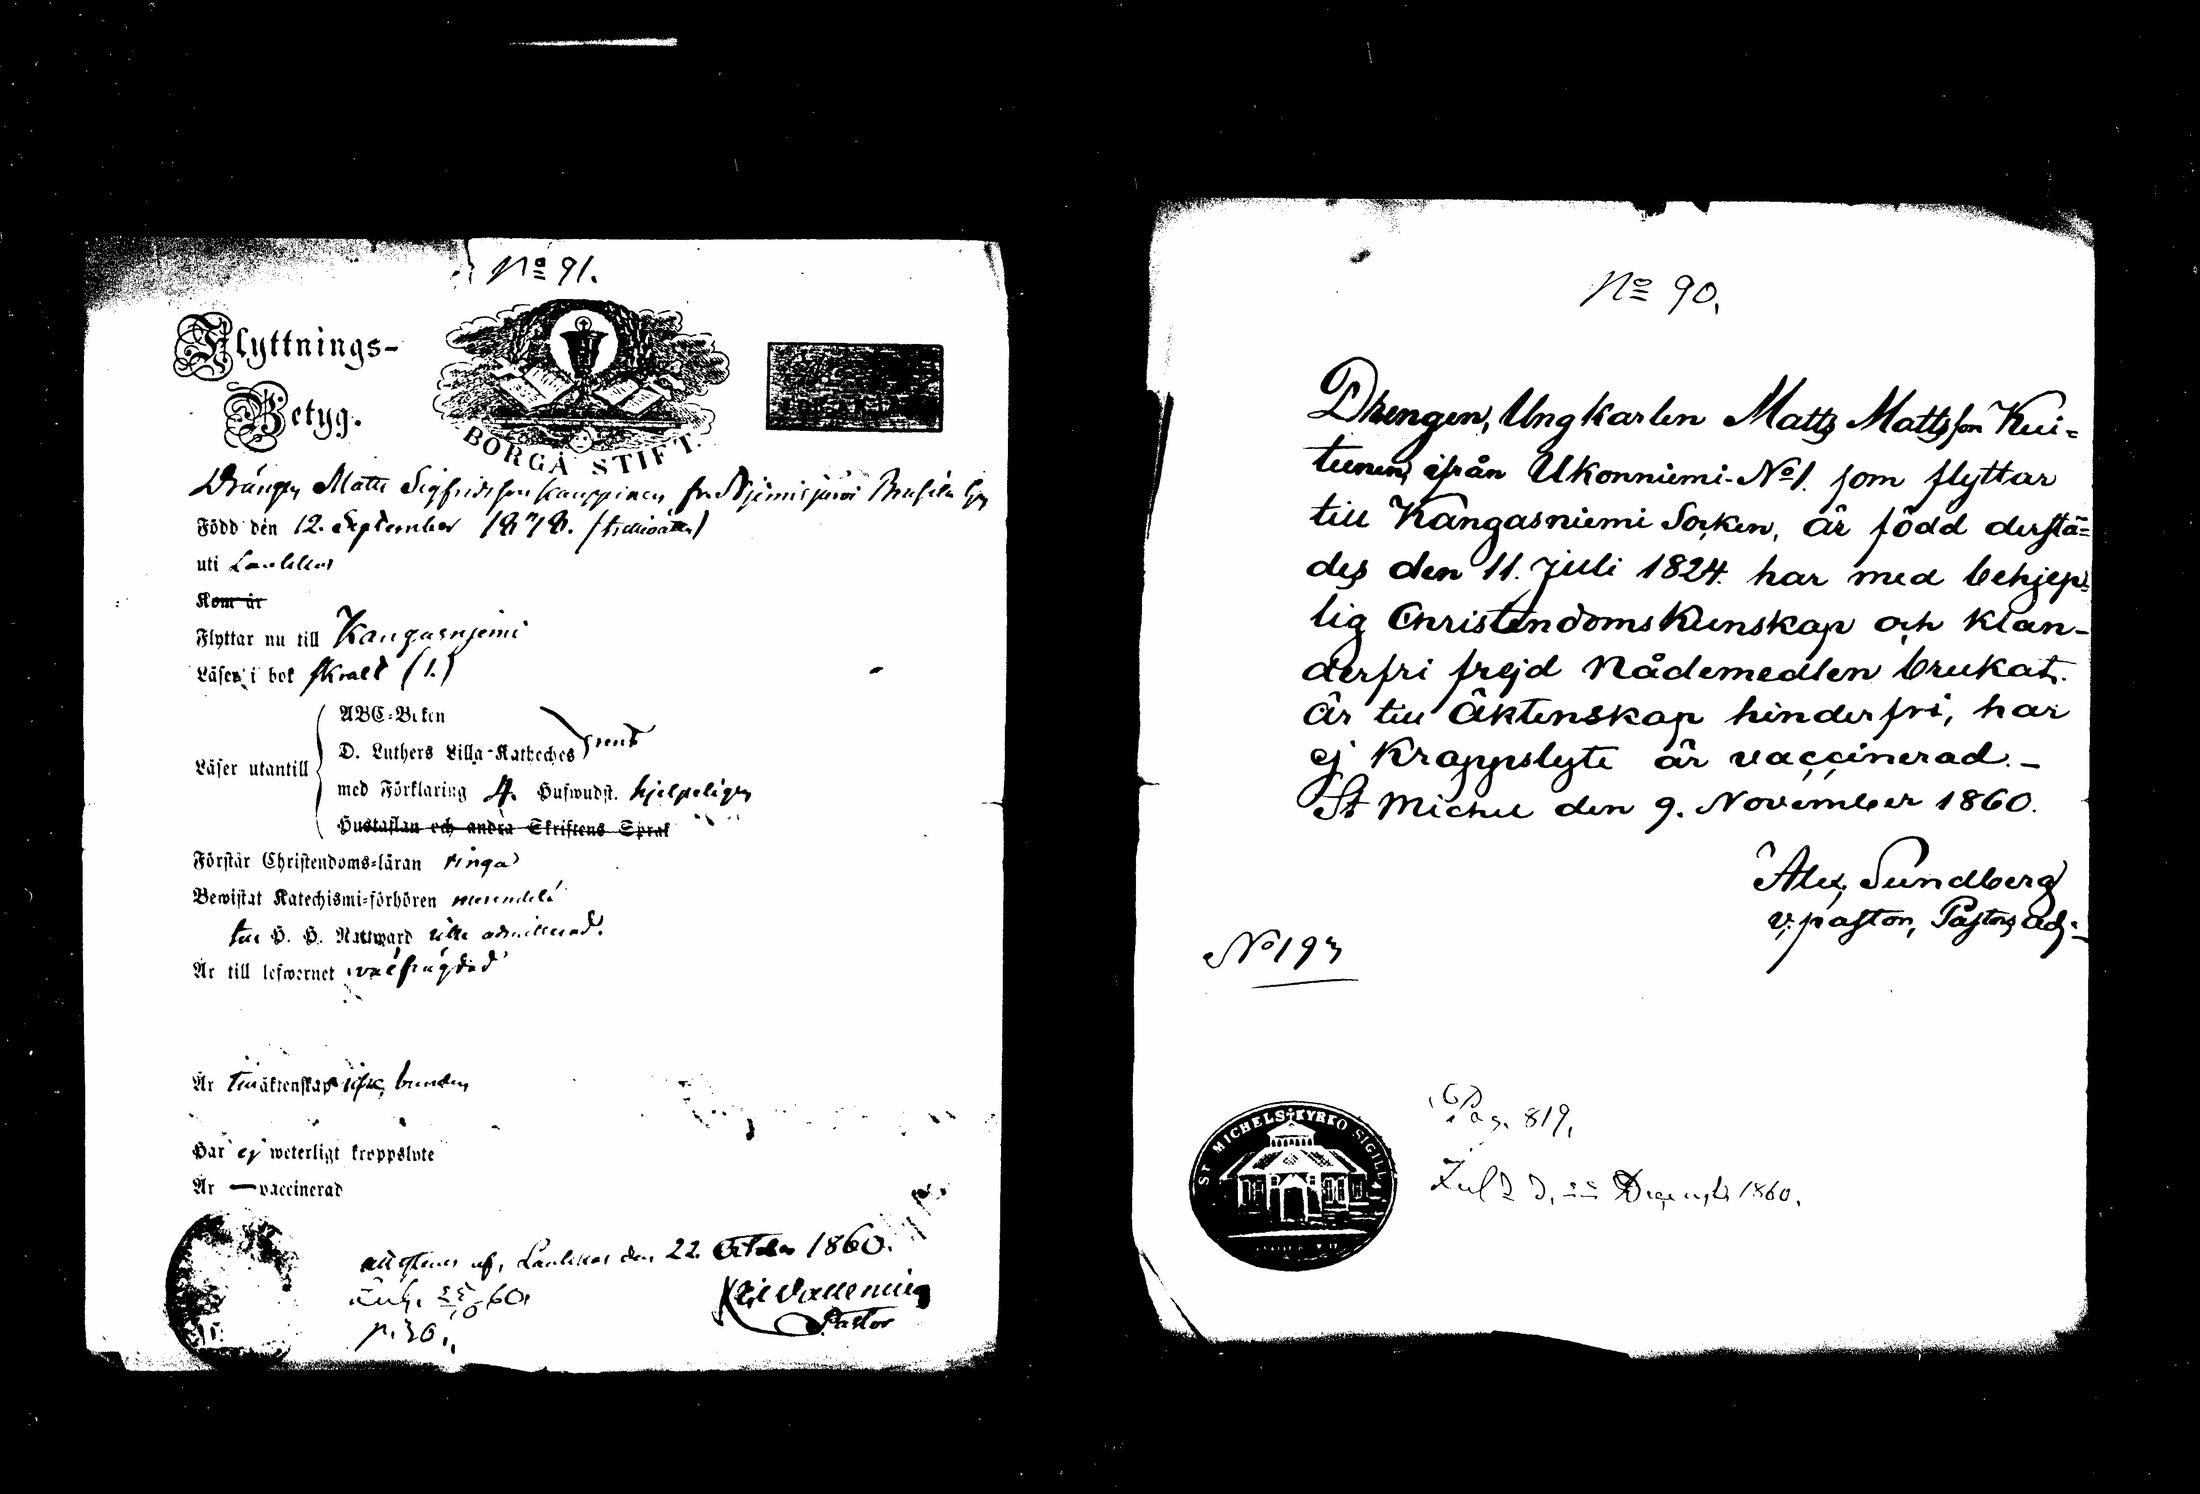 No 91.
Flyttnings-
Betyg.
BORGÅ STIFT.
Drängen Matts Sigfridsson Kauppinen fr.
Född den 12. September
uti
Kom år
Flyttar nu till Kangasnjemi
Läser i bok svalt (1.)
Läser utantill
ABC-Boken
D. Luthers Lilla-Katheches rent
med Förklaring 4. Hufwudst. hjelpeligen
Hustaflan och andra Skriftens Språk
Förstår Christendoms-läran ringa
Bewistat Katechismi-förhören
till H. H. Nattward admitterad.
Är till lefwernet wälfrägdad
Är till äktenskap icke bunden
Har ej weterligt kroppslyte
Är — vaccinerad
den 22. October 1860.
Pastor
No 90.
Drengen, Ungkarlen Matts Mattsson Kui-
tunen, ifrån Ukonniemi No 1. som flyttar
till Kangasniemi Socken, är född derstä-
des den 11. Juli 1824. har med behjelp-
lig Christendoms Kunskap och klan-
derfri frejd Nådemedlen brukat.
Är till Äktenskap hinderfri, har
ej Kroppslyte är vaccinerad. _
St Michel den 9. November 1860.
Alex. Sundberg
v. pastor, Pastors adj.
No 197
ST MICHELS KYRKO SIGILL
Pag. 819.
December 1860.